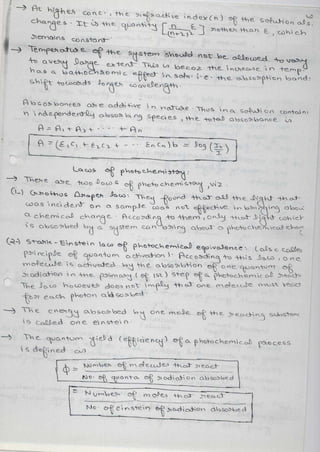 → At higher conc., the refractive index (n) of the solution als
changes. It is the quantity [ n/(n+2)² E ] rather than E, which
remains constant
→ Temperature of the system should not be allowed to vary
to a very large extent. This is becoz the increase in temp
has a bathochromic effect in soln i.e. the absorption band
shift towards longer wavelength.
Absorbances are additive in nature. Thus in a solution contain
n independently absorbing species, the total absorbance is
A = A₁ + A₂ + ---- + An
A = (E₁C₁ + E₂C₂ + --- EnCn) b = log (I₀/I)
Laws of photochemistry
→ There are two laws of photochemistry, viz
(1.) Grothus Draper law: They found that all the light that
was incident on a sample was not effective in bringing abou
a chemical change. According to them, only that light which
is absorbed by a system can bring about a photochemical chan
(2.) Stark-Einstein law of photochemical equivalence: (also calle
principle of quantum activation): According to this law, one
molecule is activated by the absorbtion of one quantum of
radiation in the primary (of 1st) step of a photochemical react
The law however does not imply that one molecule must react
for each photon absorbed
→ The energy absorbed by one mole of the reacting substan
is called one einstein
→ The quantum yield (efficiency) of a photochemical process
is defined as
ϕ = Number of molecules that react
No. of quanta of radiation absorbed
= Number of moles that react
No. of einstein of radiation absorbed